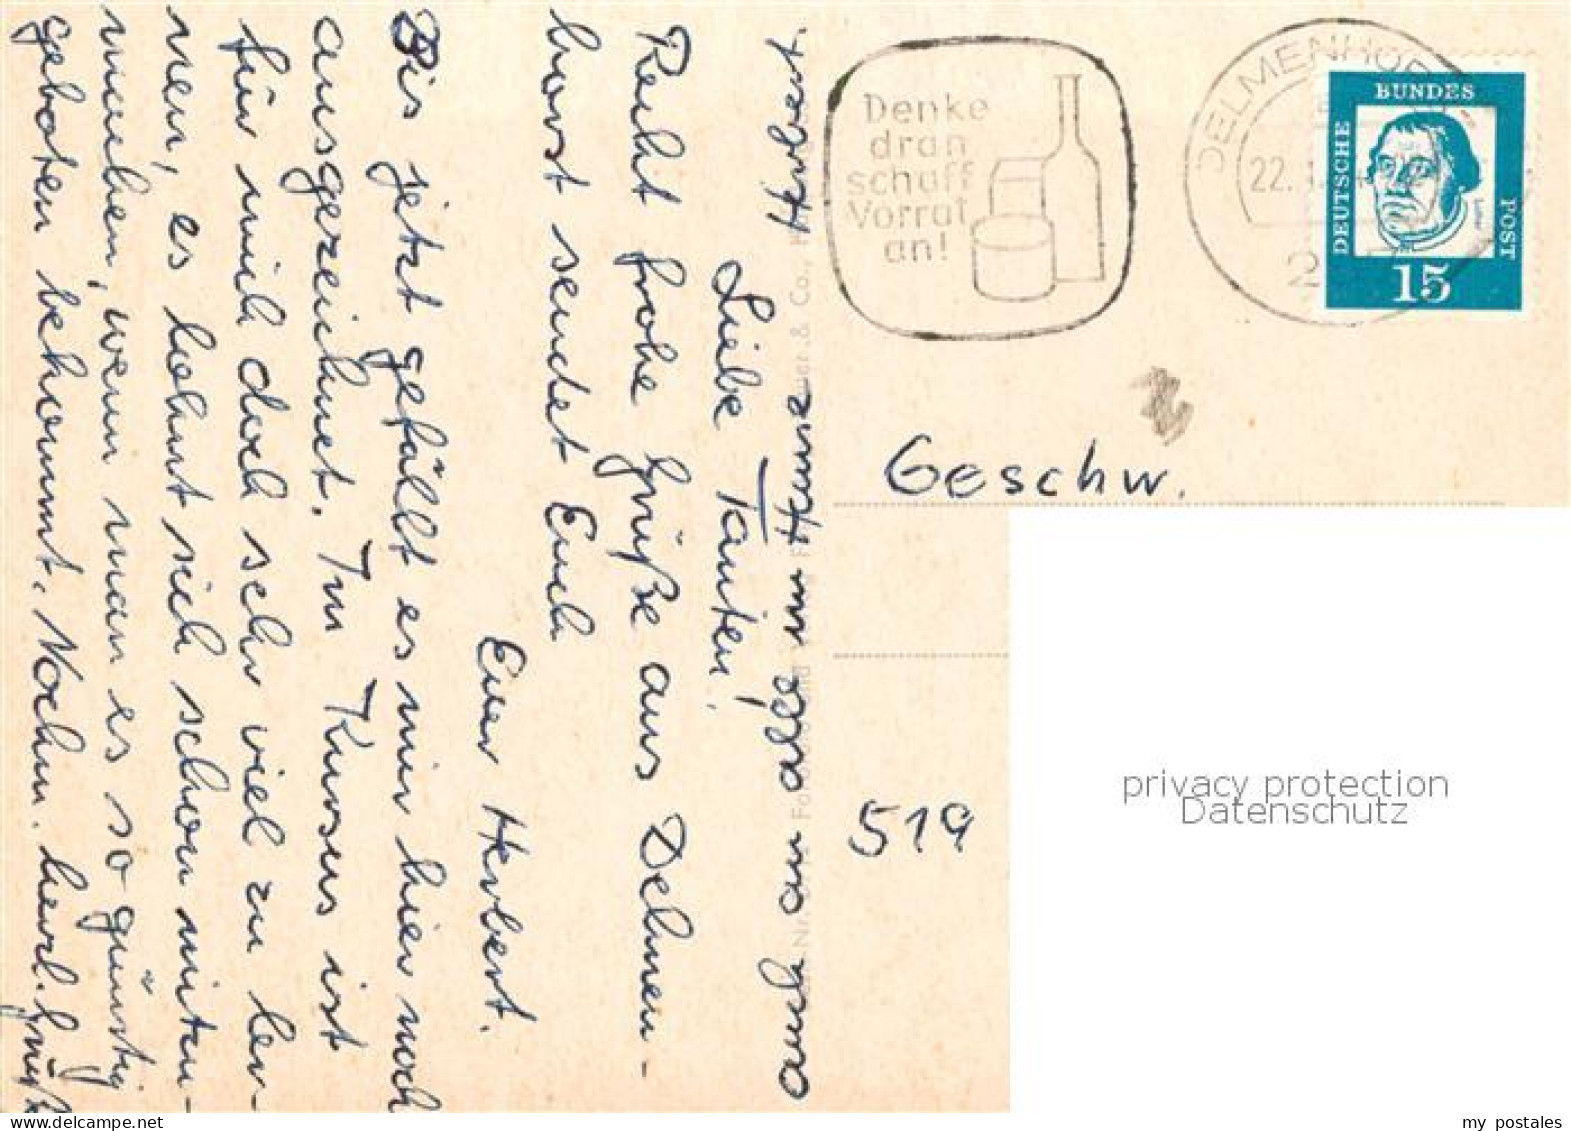 Liebe Tanten!
Recht frohe Grüße aus Delmen-
horst sendet Euch
Euer Herbert.
Bis jetzt gefällt es mir hier noch
ausgezeichnet. Im Kursus ist
für mich doch sehr viel zu ler-
nen, es lohnt sich schon mitzu-
machen, wenn man es so günstig
geboten bekommt. Nochm. herzl. Grüße
auch an alle im Hause Herbert.
Denke
dran
schaff
Vorrat
an!
DELMENHORST
22.
2
DEUTSCHE
BUNDES
POST
Luther
15
Geschw.
519
& Co.,
privacy protection
Datenschutz
my postales